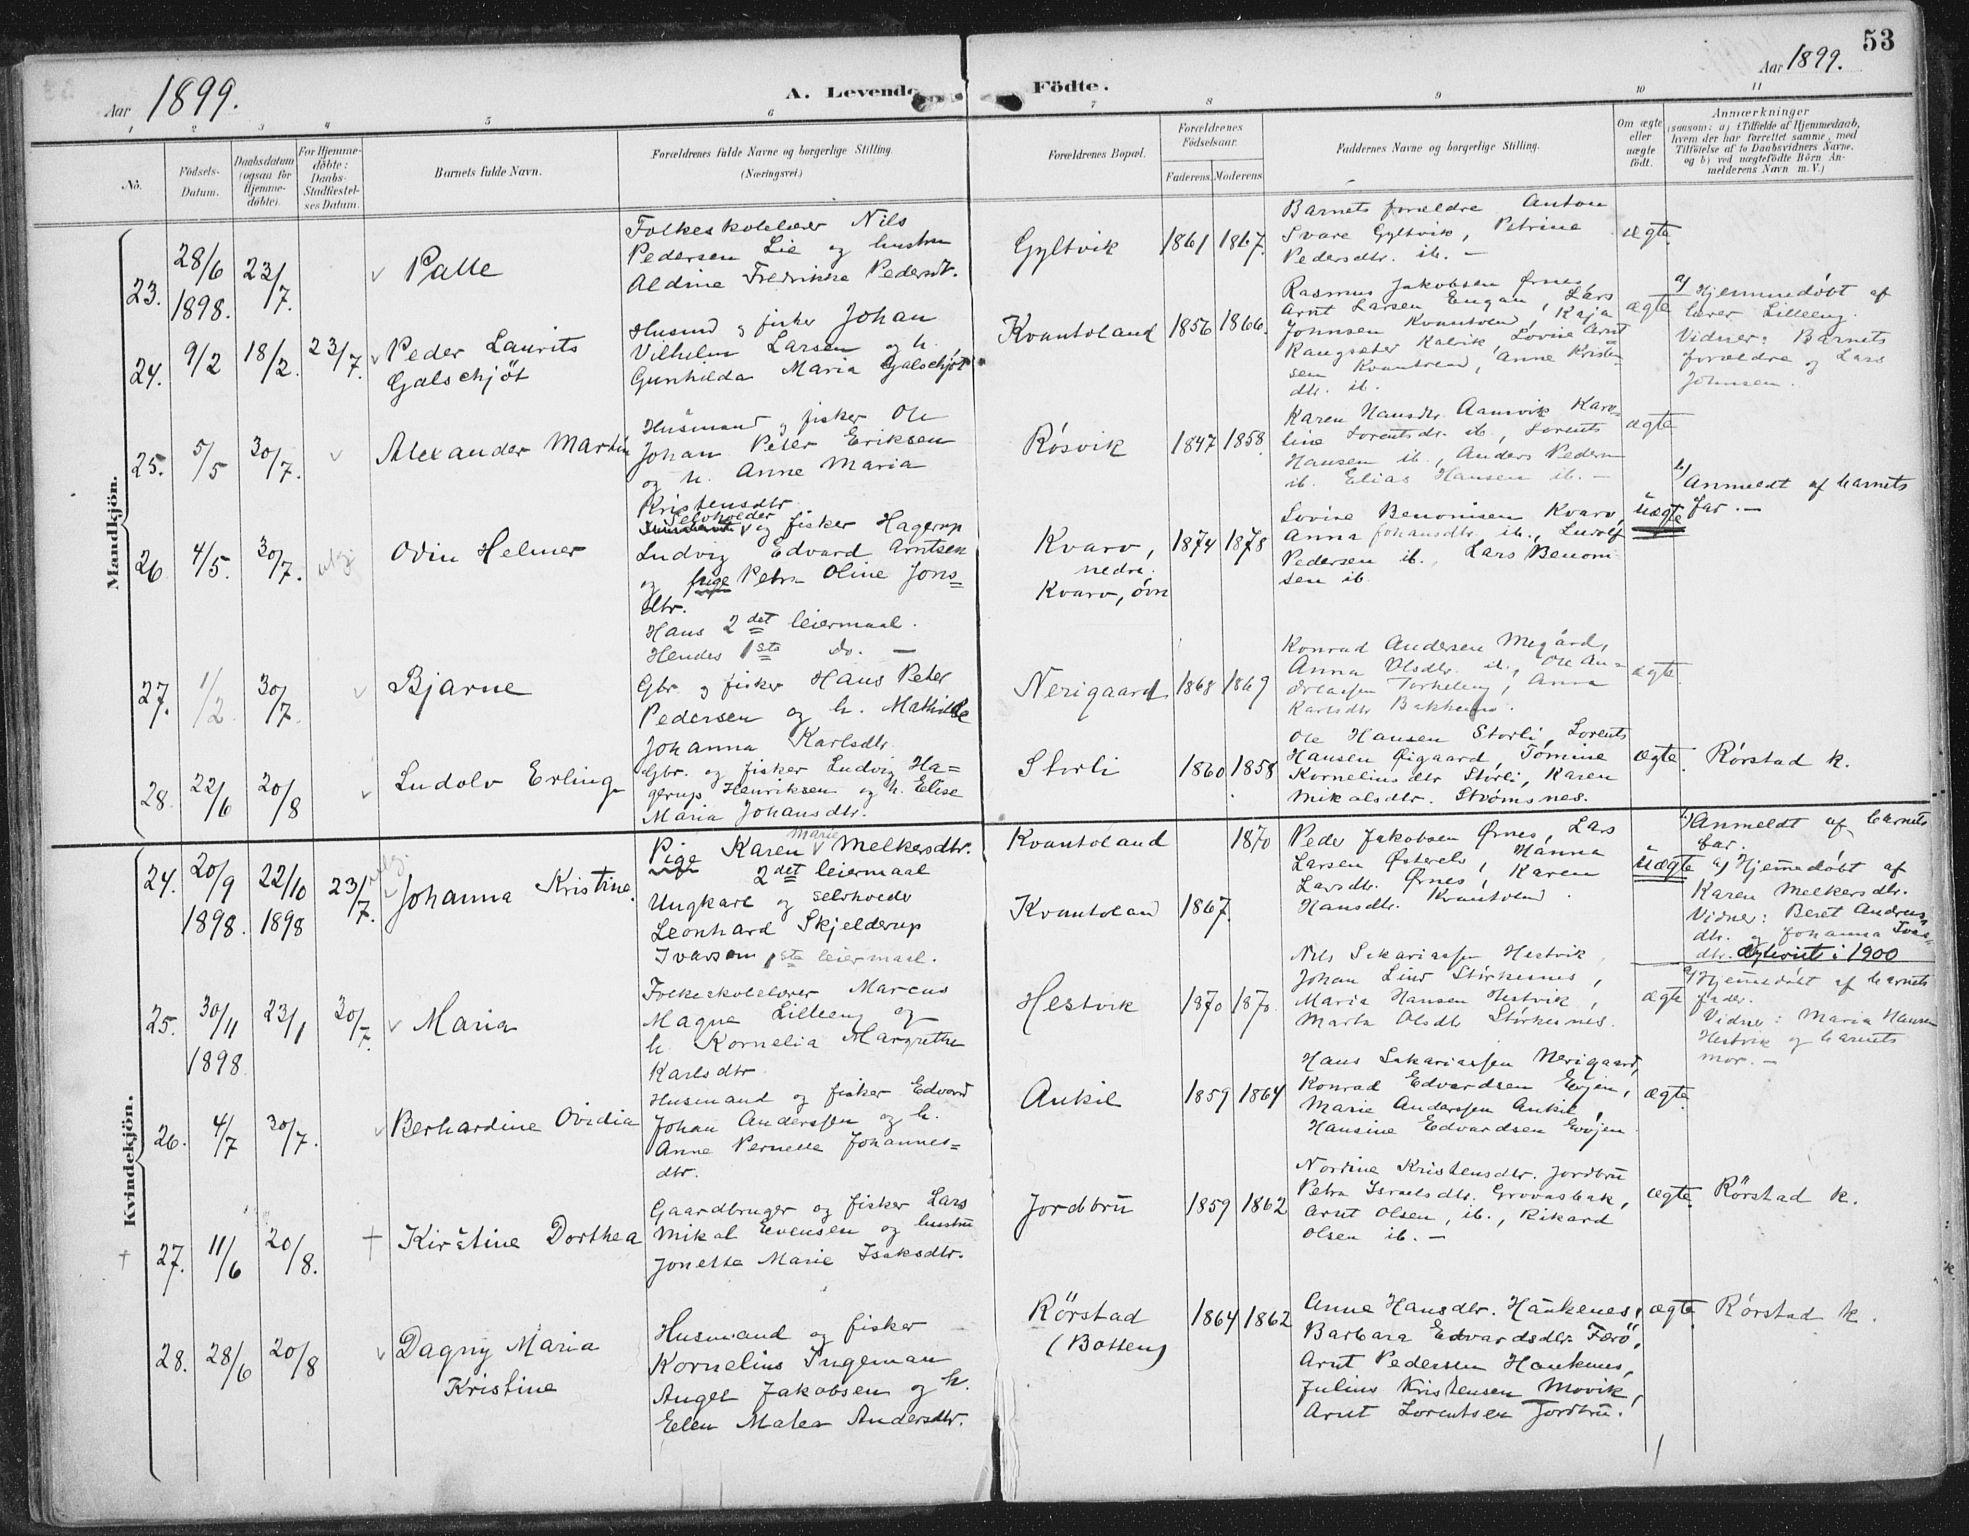 53
Aar 1899.
A. Levende Födte.
Aar 1899.
1 2 3 4 5 6 7 8 9 10 11
No.
Födsels-
Datum.
Daabsdatum
(ogsaa for
Hjemme-
döbte).
For Hjemme-
döbte:
Daabs-
Stadfæstel-
ses Datum.
Barnets fulde Navn.
Forældrenes fulde Navne og borgerlige Stilling.
(Næringsvei.)
Forældrenes Bopæl.
Forældrenes
Födselsaar.
Faderens. Moderens.
Faddernes Navne og borgerlige Stilling.
Om ægte
eller
uægte
födt.
Anmærkninger
(saasom: a) i Tilfælde af Hjemmedaab,
hvem der har forrettet samme, med
Tilföielse af to Daabsvidners Navne,
og b) ved uægtefödte Börn An-
melderens Navn m. V.)
Mandkjön.
23.
28/6
1898.
23/7.
Palle
Folkeskolelærer Nils
Pedersen Lie og hustru
Aldine Fredrikke Pedersdtr.
Gyltvik
1861 1867.
Barnets forældre Anton
Svare Gyltvik, Petrine
Pedersdtr. ib. —
ægte
24.
9/2
18/2.
23/7.
Peder Laurits
Galschjöt
Husmd og fisker Johan
Vilhelm Larsen og h.
Gunhilda Maria Galschjöt
Kvantoland
1856 1866.
Rasmus Jakobsen Ørnes,
Arnt Larsen Engan, Lars
Johnsen Kvantolnd, Kaja
Kalvik, Lovise Arnt
sen Kvantolnd, Anne Kristen
dtr. ib.
ægte
a) Hjemmedöbt af
lærer Lilleeng.
Vidner: Barnets
forældre og Lars
Johnsen.
25.
5/5
30/7.
Alexander Martin
Husmand og fisker Ole
Johan Peter Eriksen
og h. Anne Maria
Kristensdtr
Rösvik
1847 1858.
Karen Hansdtr. Aansvik Karo-
line Lorentsdtr. ib., Lorents
Hansen ib., Anders Pedersn
ib. Elias Hansen ib. —
ægte
26
4/5.
30/7.
Odin Helmer
Selvholder
og fisker Hagerup
Ludvig Edvard Arntsen
og pige Petra Oline Jons=
dtr.
Hans 2det leiermaal.
Hendes 1ste do. —
Kvarv,
nedre.
Kvarv, övre
1874 1878
Lovise Benonisen Kvarv,
Anna Johansdtr ib., Ludolf
Pedersen ib., Lars Benoni
sen ib.
uægte
b) Anmeldt af barnets
far. —
27.
1/2
30/7
Bjarne
Gbr. og fisker Hans Peter
Pedersen og h. Mathilde
Johanna Karlsdtr.
Nerigaard
1868 1869
Konrad Andersen Megård,
Anna Olsdtr. ib., Ole An=
dreassen Torkeleng, Anna
Karlsdtr Bakken.
ægte
28.
22/6
20/8
Ludolv Erling
Gbr. og fisker Ludvig Ha=
gerup Henriksen og h. Elise
Maria Johansdtr.
Storli
1860 1858
Ole Hansen Storli, Lorents
Hansen Øigaard, Tomine
Korneliusdtr Storli, Karen
Mikalsdtr. Strömsnes.
ægte.
Rörstad k.
Kvindekjön.
24.
20/9
1898.
22/10
1898
23/7.
Johanna Kristine.
Pige Karen Marie Melkersdtr.
2det leiermaal
Ungkarl og selvholder
Leonhard Skjelderup
Ivarson 1ste leiermaal.
Kvantoland
Kvantolan
1870
1867.
Peder Jakobsen Ørnes, Lars
Larsen , Hanna
Larsdtr. Ørnes, Karen
Hansdtr. Kvantolnd.
uægte
b) Anmeldt af barnets
far.
a) Hjemmedöbt af
Karen Melkersdtr.
Vidner: Beret Andreas
dtr. og Johanna Ivers-
dtr. i 1900
25.
30/11
1898
23/1
30/7.
Maria
Folkeskolelærer Marcus
Magne Lilleeng og
h. Kornelia Margrethe
Karlsdtr
Hestvik
1870 1870.
Nils Sakariassen Hestvik,
Johan Lind Störkesnes,
Maria Hansen Hestvik,
Marta Olsdtr Störkesnes.
ægte
a) Hjemmedöbt af barnets
fader.
Vidner: Maria Hansen
Hestvik og barnets
mor. —
26.
4/7
30/7.
Berhardine Ovidia
Husmand og fisker Edvard
Johan Anderssen og h.
Anne Pernelle Johannes=
dtr.
Ankil
1859 1864
Hans Sakariassen Nerigaard,
Konrad Edvardsen Evjen,
Marie Anderssen Ankil,
Hansine Edvardsen Evjen.
ægte.
†
27.
11/6
20/8.
† Kirstine Dorthea
Gaardbruger og fisker Lars
Mikal Evensen og hustru
Jonette Marie Isaksdtr.
Jordbru
1859 1862
Nordine Kristensdtr. Jordbru
Petra Israelsdtr. Grovasbak,
Arnt Olsen, ib., Rikard
Olsen ib. —
ægte.
Rörstad k.
28.
28/6
20/8
Dagny Maria
Kristine
Husmand og fisker
Kornelius Ingeman
Angel Jakobsen og h.
Ellen Malea Andersdtr.
Rörstad
(Botten)
1864 1862
Anne Hansdtr. Haukenes,
Barbara Edvardsdtr. Ferö,
Arnt Pedersen Haukenes,
Julius Kristensen Movik,
Arnt Lorentsen Jordbru.
ægte.
Rörstad k.